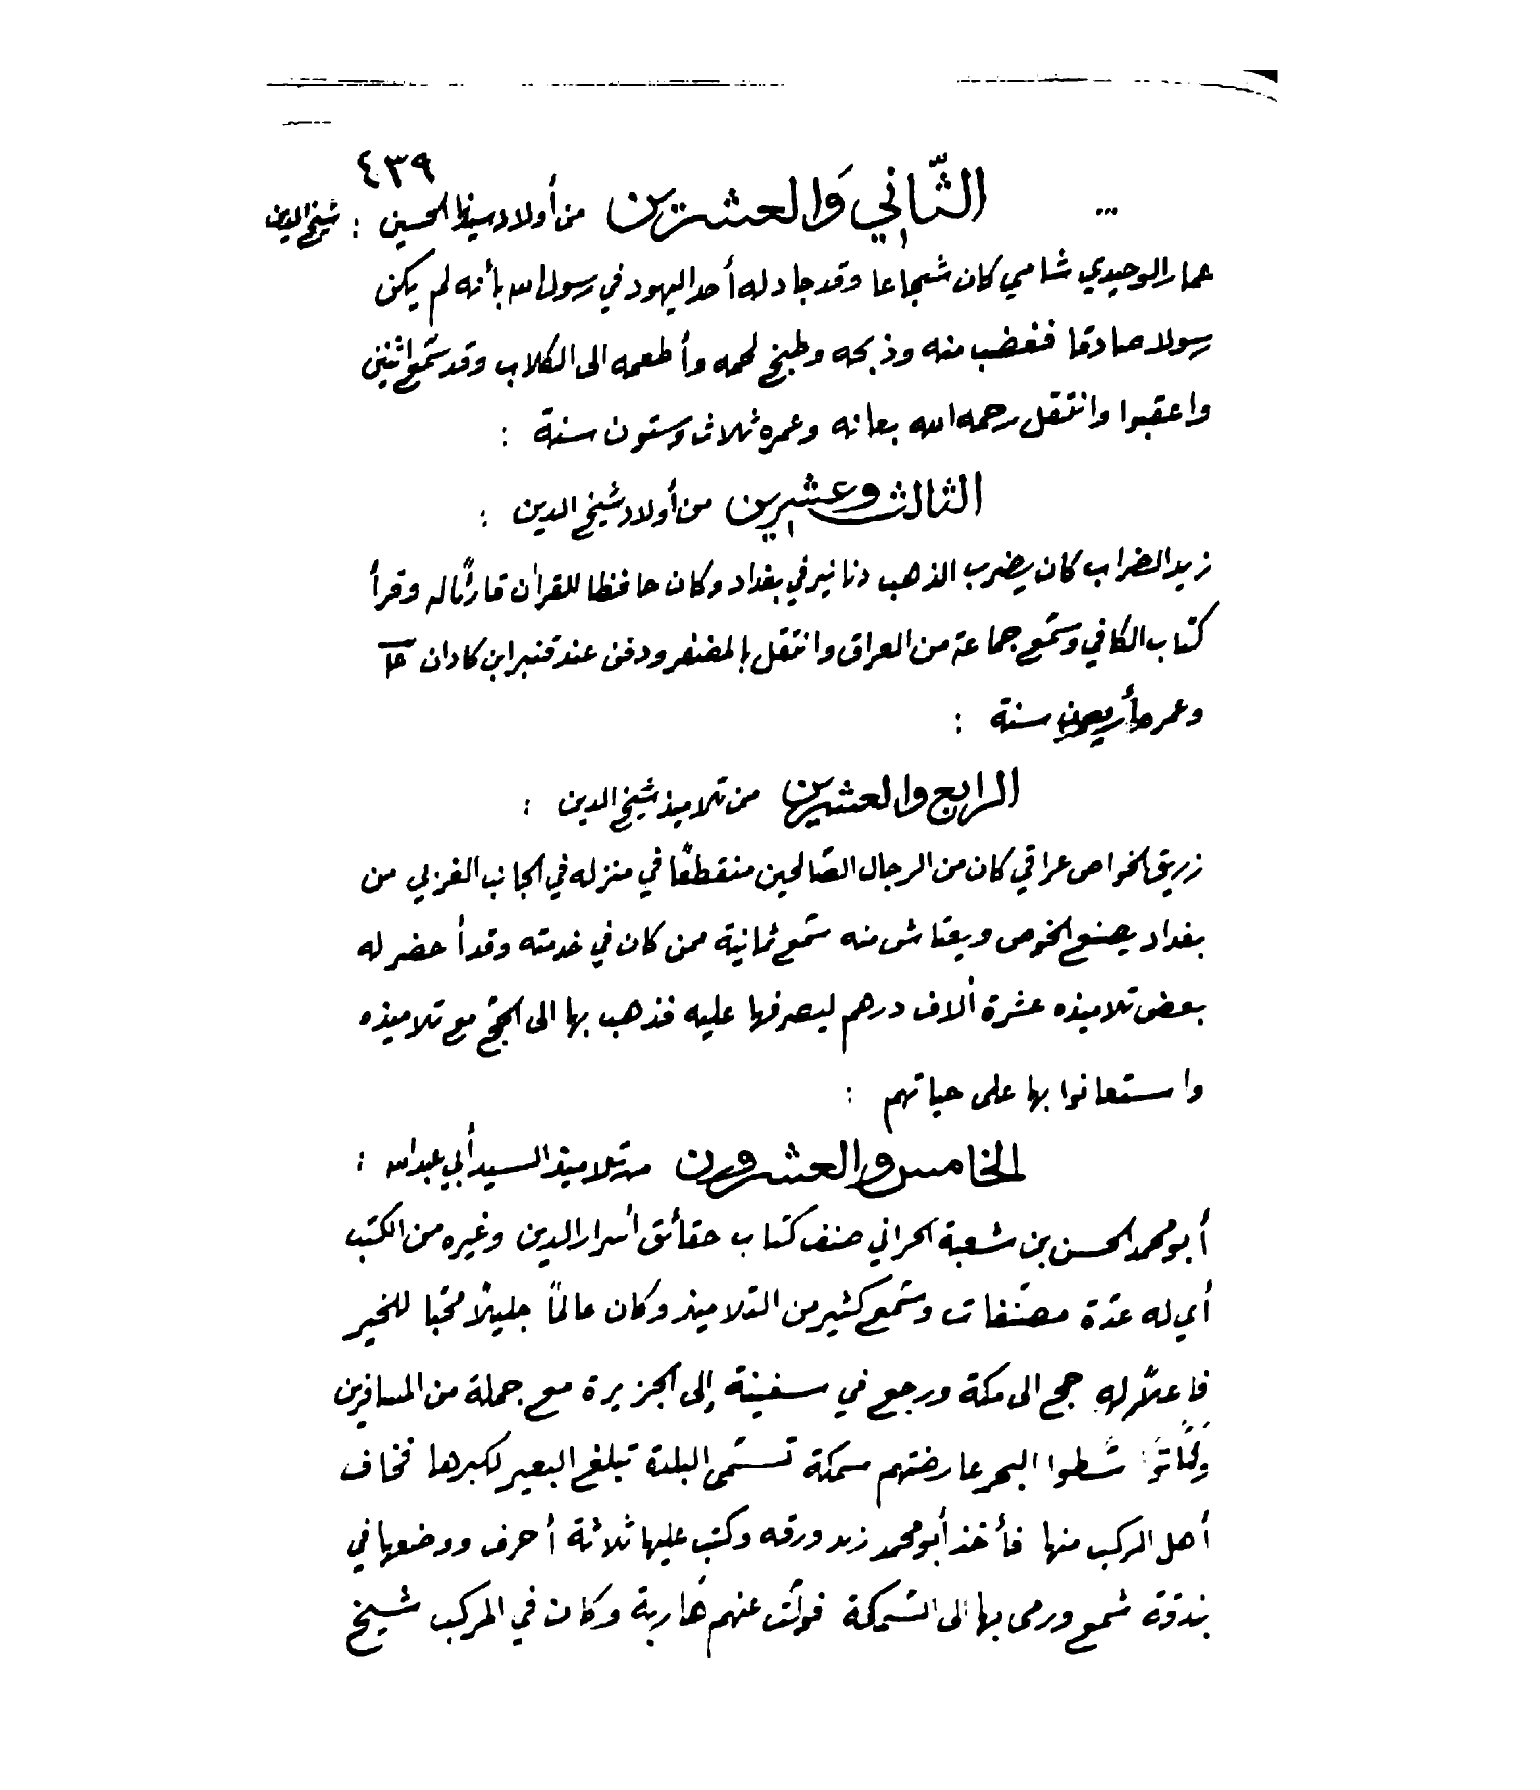 ٤٣٩
... الثّاني وَالعشرين من أولاد سيدنا الحسين : شيخ الدين
عمار الوحيدي شامي كان شجاعا وقد جادله أحد اليهود في رسول الله بأنه لم يكن
رسولا صادقا فغضب منه وذبحه وطبخ لحمه وأطعمه الى الكلاب وقد سمّع اثنين
واعقبوا وانتقل رحمه الله بعانه وعمره ثلاث وستون سنة :
الثالث وعشرين من أولاد شيخ الدين :
زيد الضراب كان يضرب الذهب دنانير في بغداد وكان حافظا للقران قارئًا له وقرأ
كتاب الكافي وسمّع جماعة من العراق وانتقل بالمضنفر ودفن عند قنبر ابن كادان
وعمره أربعون سنة :
الرابع والعشرين من تلاميذ شيخ الدين :
زريق الخواص عراقي كان من الرجال الصّالحين منقطعًا في منزله في الجانب الغربي من
بغداد يصنع الخوص ويعتاش منه سمّع ثمانية ممن كان في خدمته وقد أحضر له
بعض تلاميذه عشرة ألاف درهم ليصرفها عليه فذهب بها الى الحجّ مع تلاميذه
واستعانوا بها على حياتهم :
الخامس والعشرون من تلاميذ السيد أبي عبدالله :
أبو محمد الحسن بن شعبة الحراني صنف كتاب حقائق أسرار الدين وغيره من الكتب
أي له عدّة مصنّفات وسمّع كثير من التلاميذ وكان عالمًا جليلًا محبّا للخير
فاعلًا له حج الى مكة ورجع في سفينة إلى الجزيرة مع جملة من المسافرين
شَطوا البحر عارضتهم سمكة تسمّى البلدة تبلغ البعير لكبرها فخاف
أهل المركب منها فأخذ أبو محمد زيد ورقه وكتب عليها ثلاثة أحرف ووضعها في
بندقة شمع ورمى بها الى السّمكة فولّت عنهم هَاربة وكان في المركب شيخ